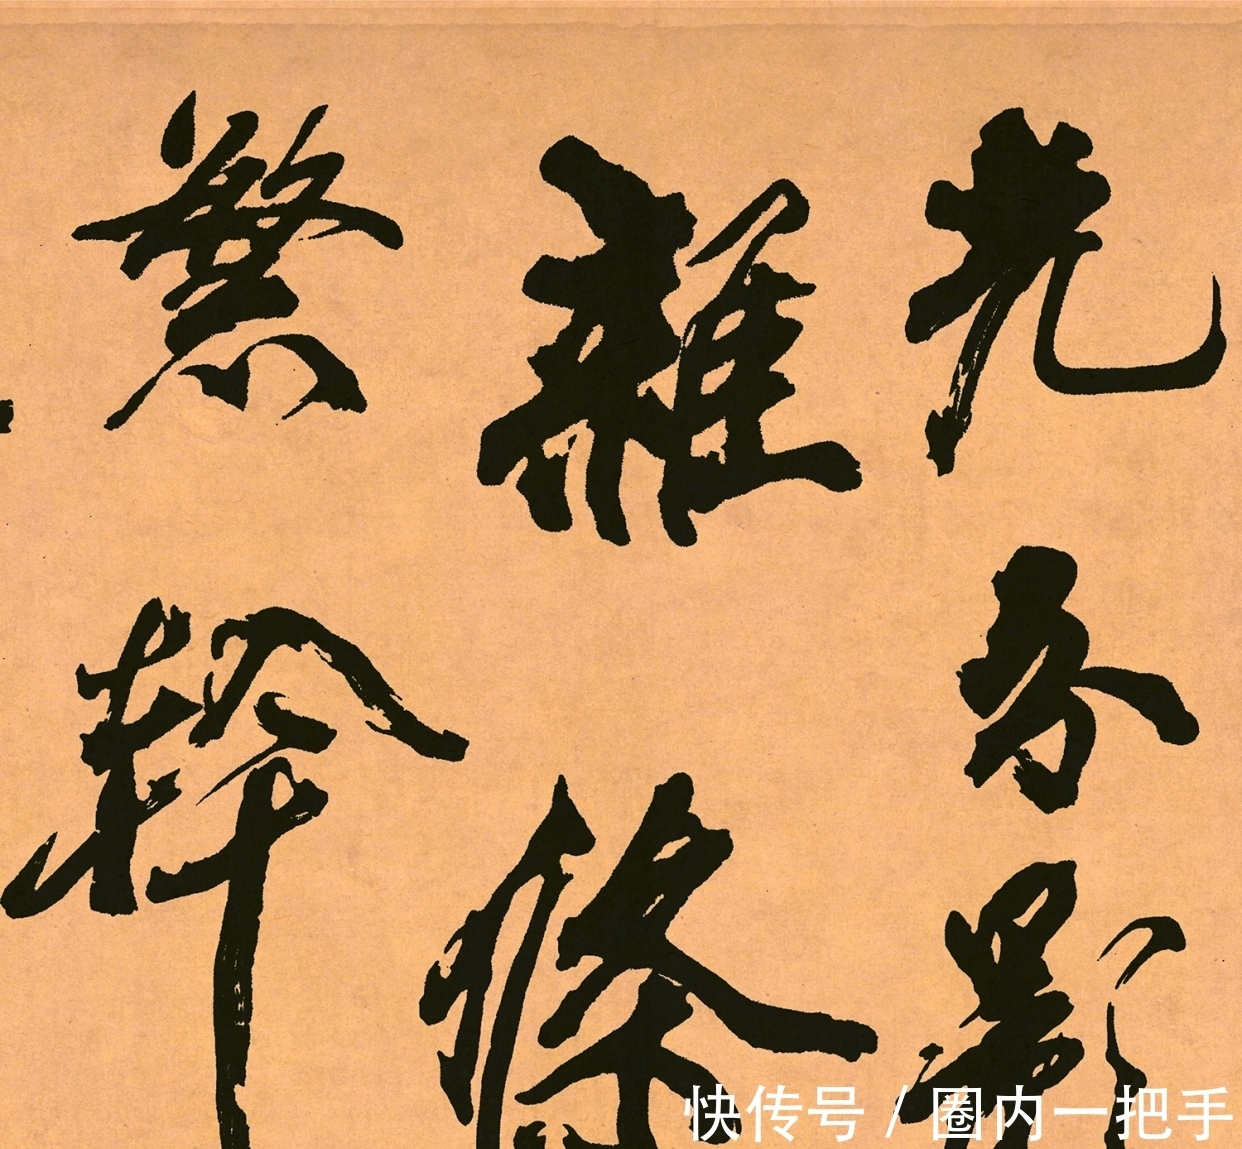 光分影
雜條
繁幹
快传号 / 圈内一把手